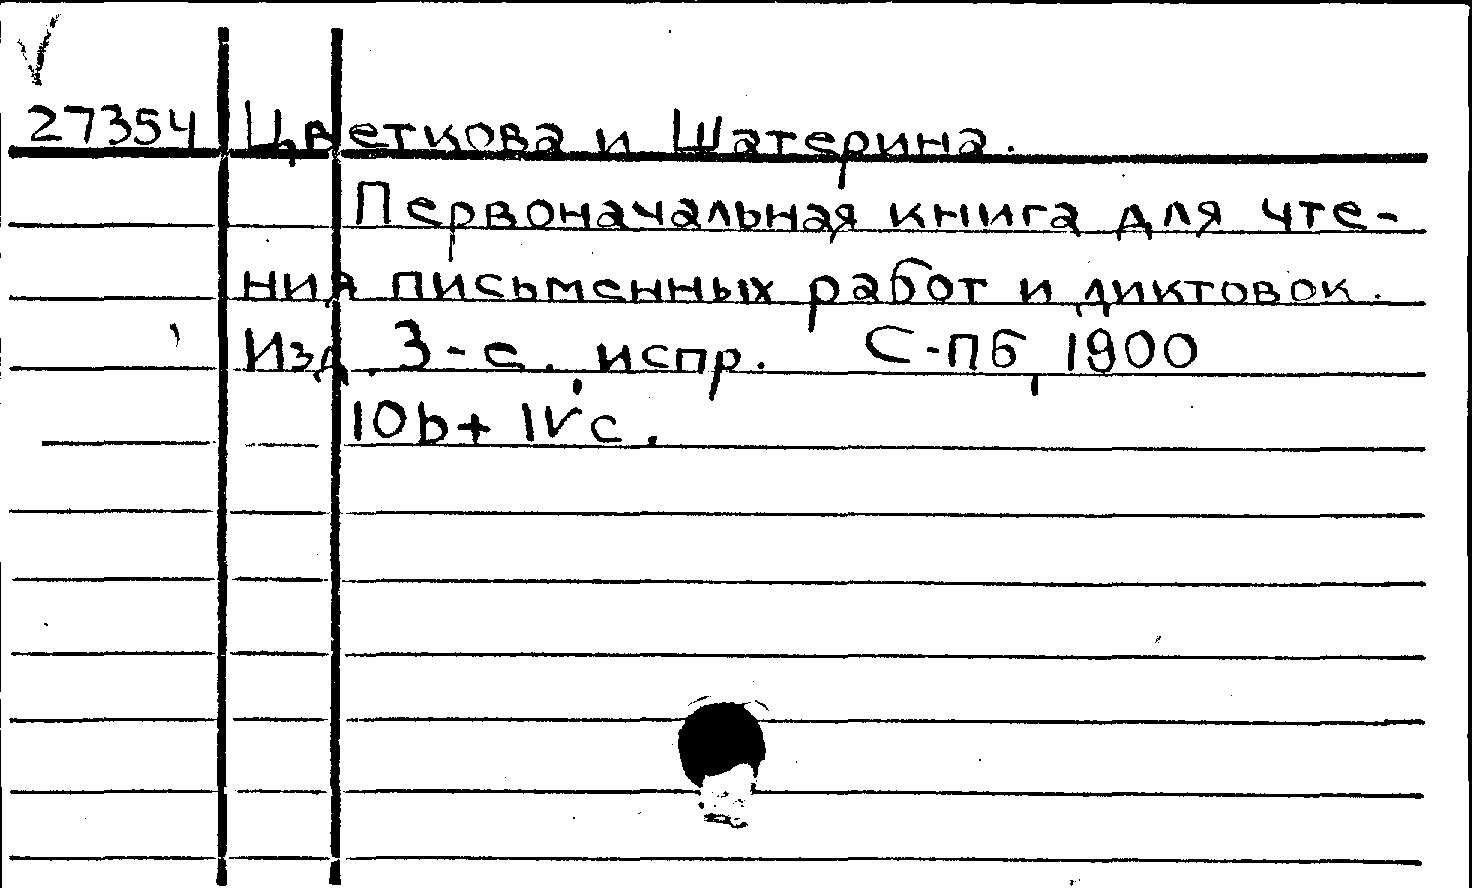 27354 Цветкова и Шатерина.
Первоначальная книга для чте-
ния письменных работ и диктовок.
Изд. 3-е, испр. С-Пб, 1900
106+IVс.